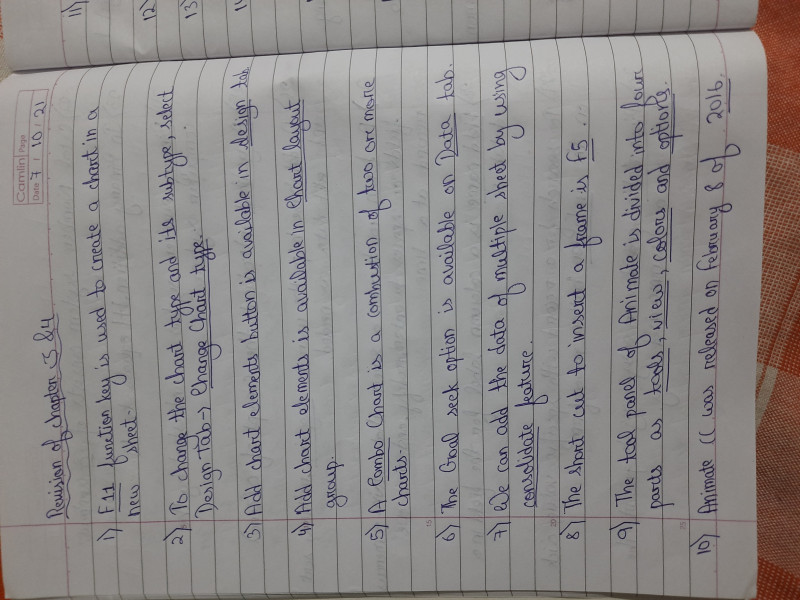 11)
12)
13)
Camlin Page
Date 7 / 10 / 21
Revision of chapter 3 &4
1) F11 function key is used to create a chart in a
new sheet.
2) To change the chart type and its subtype, select
Design Tab-> Change Chart type.
3) Add chart elements button is available in design tab
4) Add chart elements is available in Chart layout
group.
5) A Combo Chart is a combustion of two or more
charts.
6) The Goal seek option is available on Data tab.
7) We can add the data of multiple sheet by using
consolidate feature.
8) The short cut to insert a frame is F5.
9) The tool panel of Animate is divided into four
parts as tools, view, colors and options.
10) Animate CC was released on February 8 of 2016.